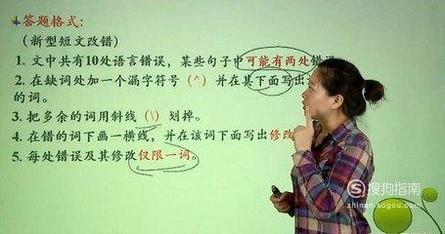 答题格式:
(新型短文改错)
1. 文中共有10处语言错误，某些句子中可能有两处错误
2. 在缺词处加一个漏字符号（^）并在其下面写出
的词。
3. 把多余的词用斜线（\）划掉。
4. 在错的词下画一横线，并在该词下面写出修改
5. 每处错误及其修改仅限一词。
搜狗指南
zhinan.sogou.com